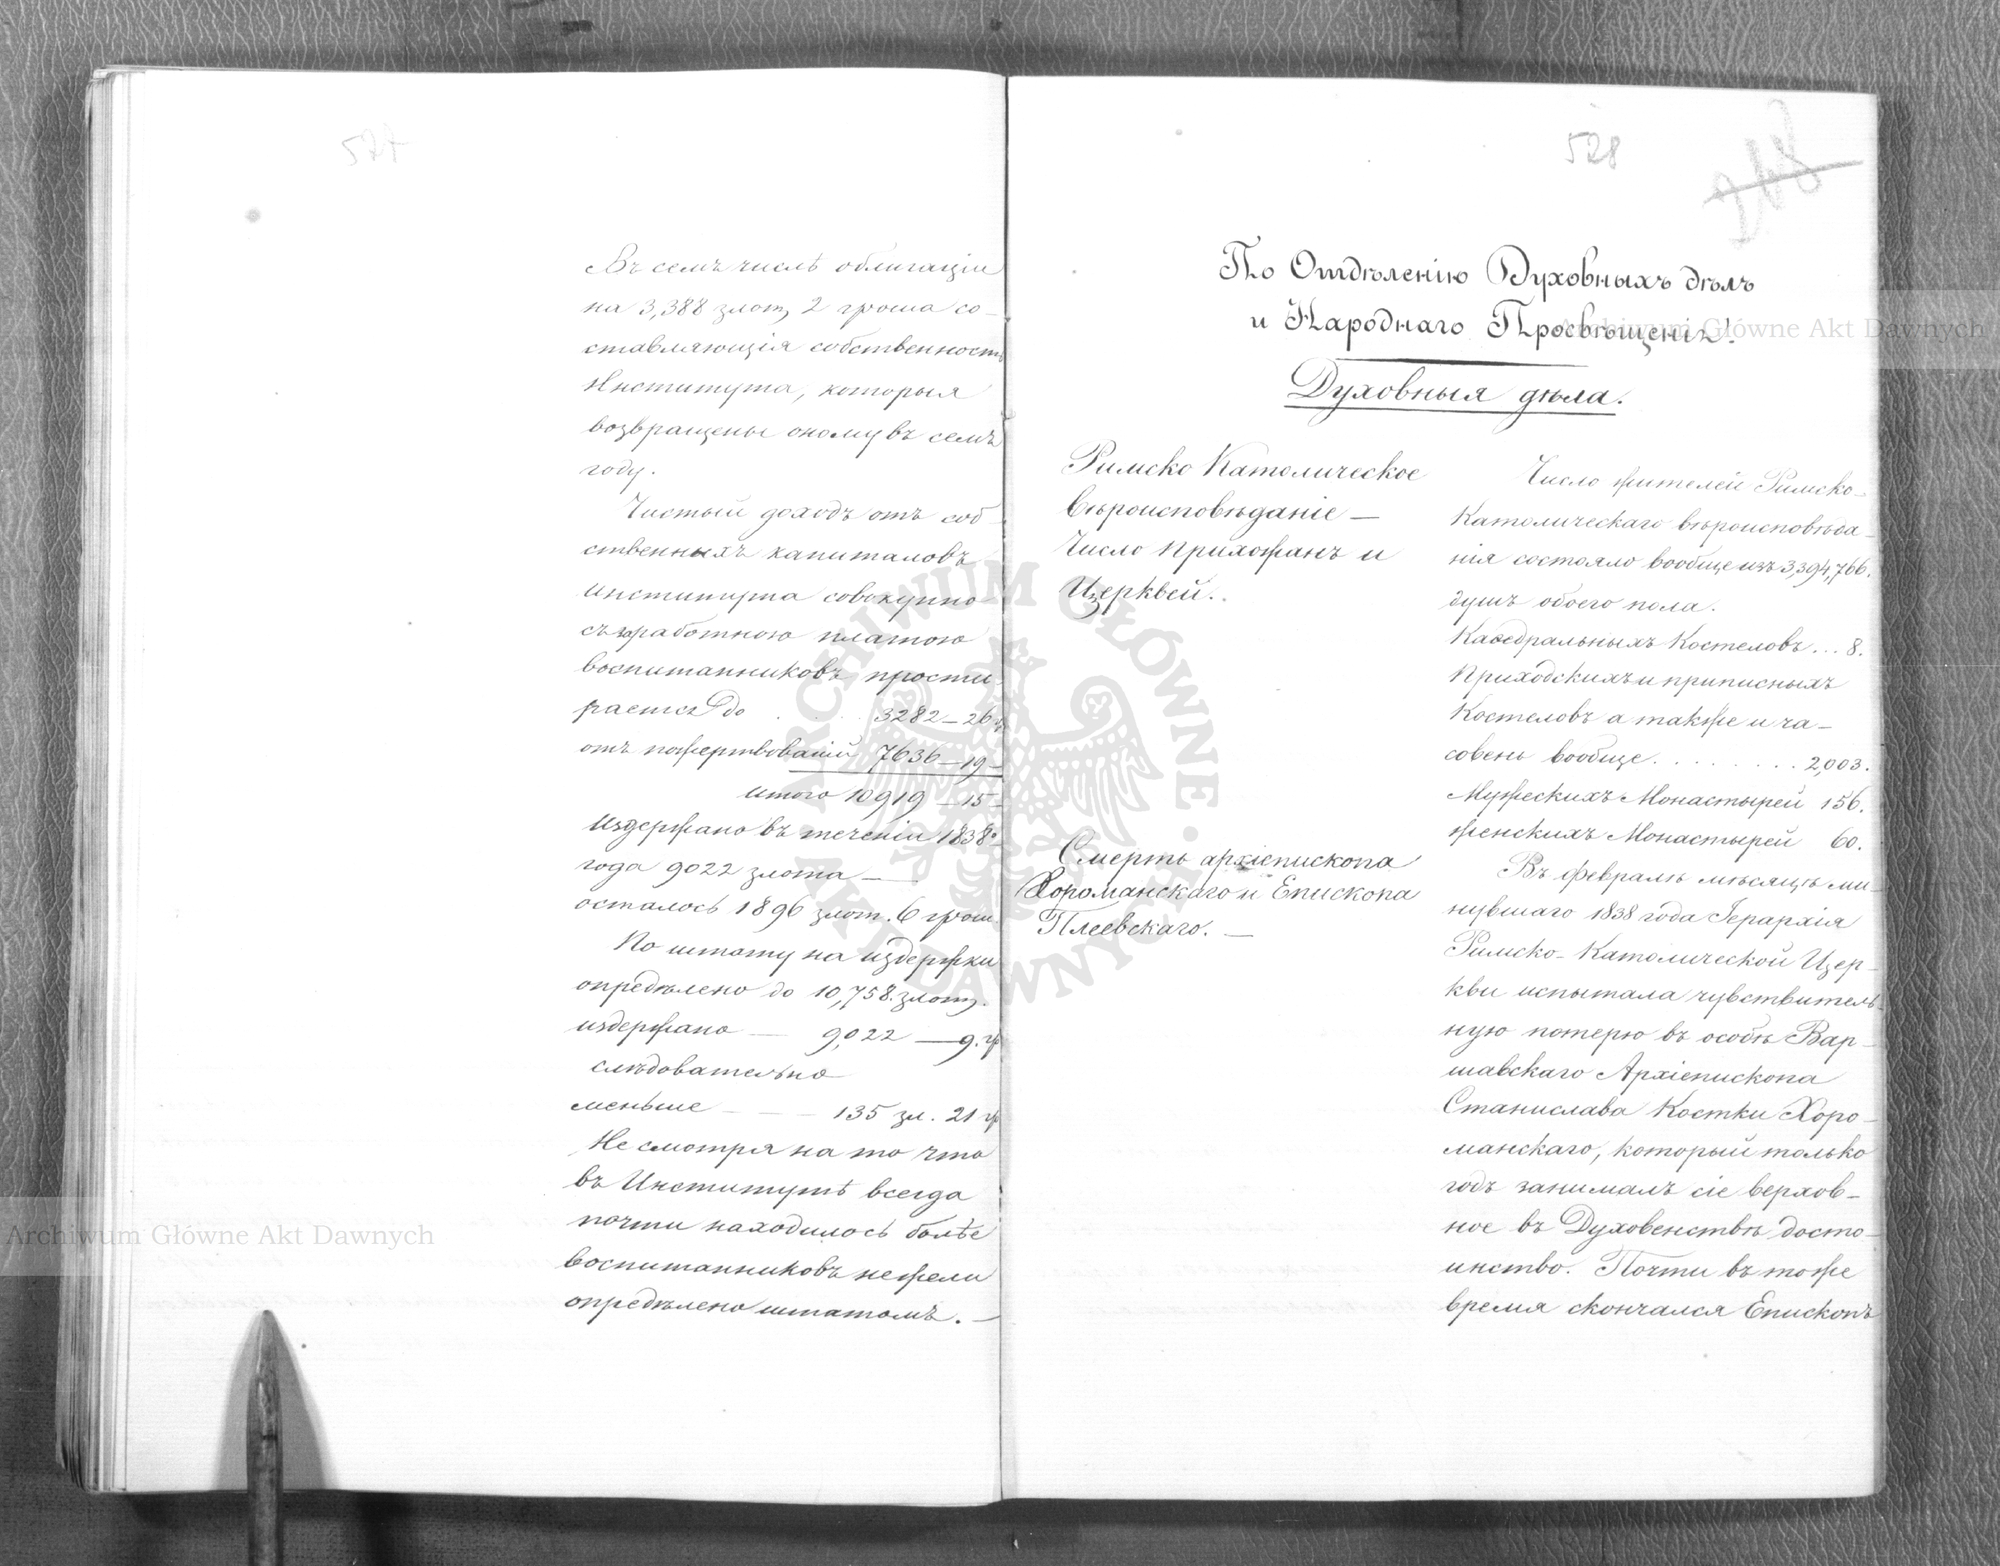 527
Въ семъ числѣ облигаціи
на 3,388 злот. 2 гроша со-
ставляющія собственность
Института, которыя
возвращены оному въ семъ
году.
Чистый доходъ отъ соб-
ственныхъ капиталовъ
Института совокупно
съ заработною платою
воспитанниковъ прости-
рается до . . . 3282 — 26 гр
отъ пожертвованій 7636 — 19 —
итого 10919 — 15 —
Издержано въ теченіи 1838го
года 9022 злота —
осталось 1896 злот. 6 грош.
По штату на издержки
опредѣлено до 10,758. злот.
издержано — 9,022 — 9. гр
слѣдовательно
меньше — — — 135 зл. 21 гр
Не смотря на то что
въ Институтѣ всегда
почти находилось болѣе
воспитанниковъ нежели
опредѣлено штатомъ. —
528
248
По Отдѣленію Духовныхъ дѣлъ
и Народнаго Просвѣщенія!
Духовныя дѣла.
Римско Католическое
вѣроисповѣданіе —
Число прихожанъ и
Церквей.
Смерть архіепископа
Хороманскаго и Епископа
Плеевскаго. —
Число жителей Римско-
Католическаго вѣроисповѣда-
нія состояло вообще изъ 3,394,766.
душъ обоего пола.
Каѳедральныхъ Костеловъ ... 8.
Приходскихъ и приписныхъ
Костеловъ а также и ча-
совень вообще . . . . . . . . 2,003.
Мужескихъ Монастырей 156.
женскихъ Монастырей 60.
Въ февралѣ мѣсяцѣ ми-
нувшаго 1838 года Іерархія
Римско-Католической Цер-
кви испытала чувствитель-
ную потерю въ особѣ Вар-
шавскаго Архіепископа
Станислава Костки Хоро-
манскаго, который только
годъ занималъ сіе верхов-
ное въ Духовенствѣ досто-
инство. Почти въ тоже
время скончался Епископъ
Archiwum Główne Akt Dawnych
Archiwum Główne Akt Dawnych
ARCHIWUM GŁÓWNE · AKT DAWNYCH ·